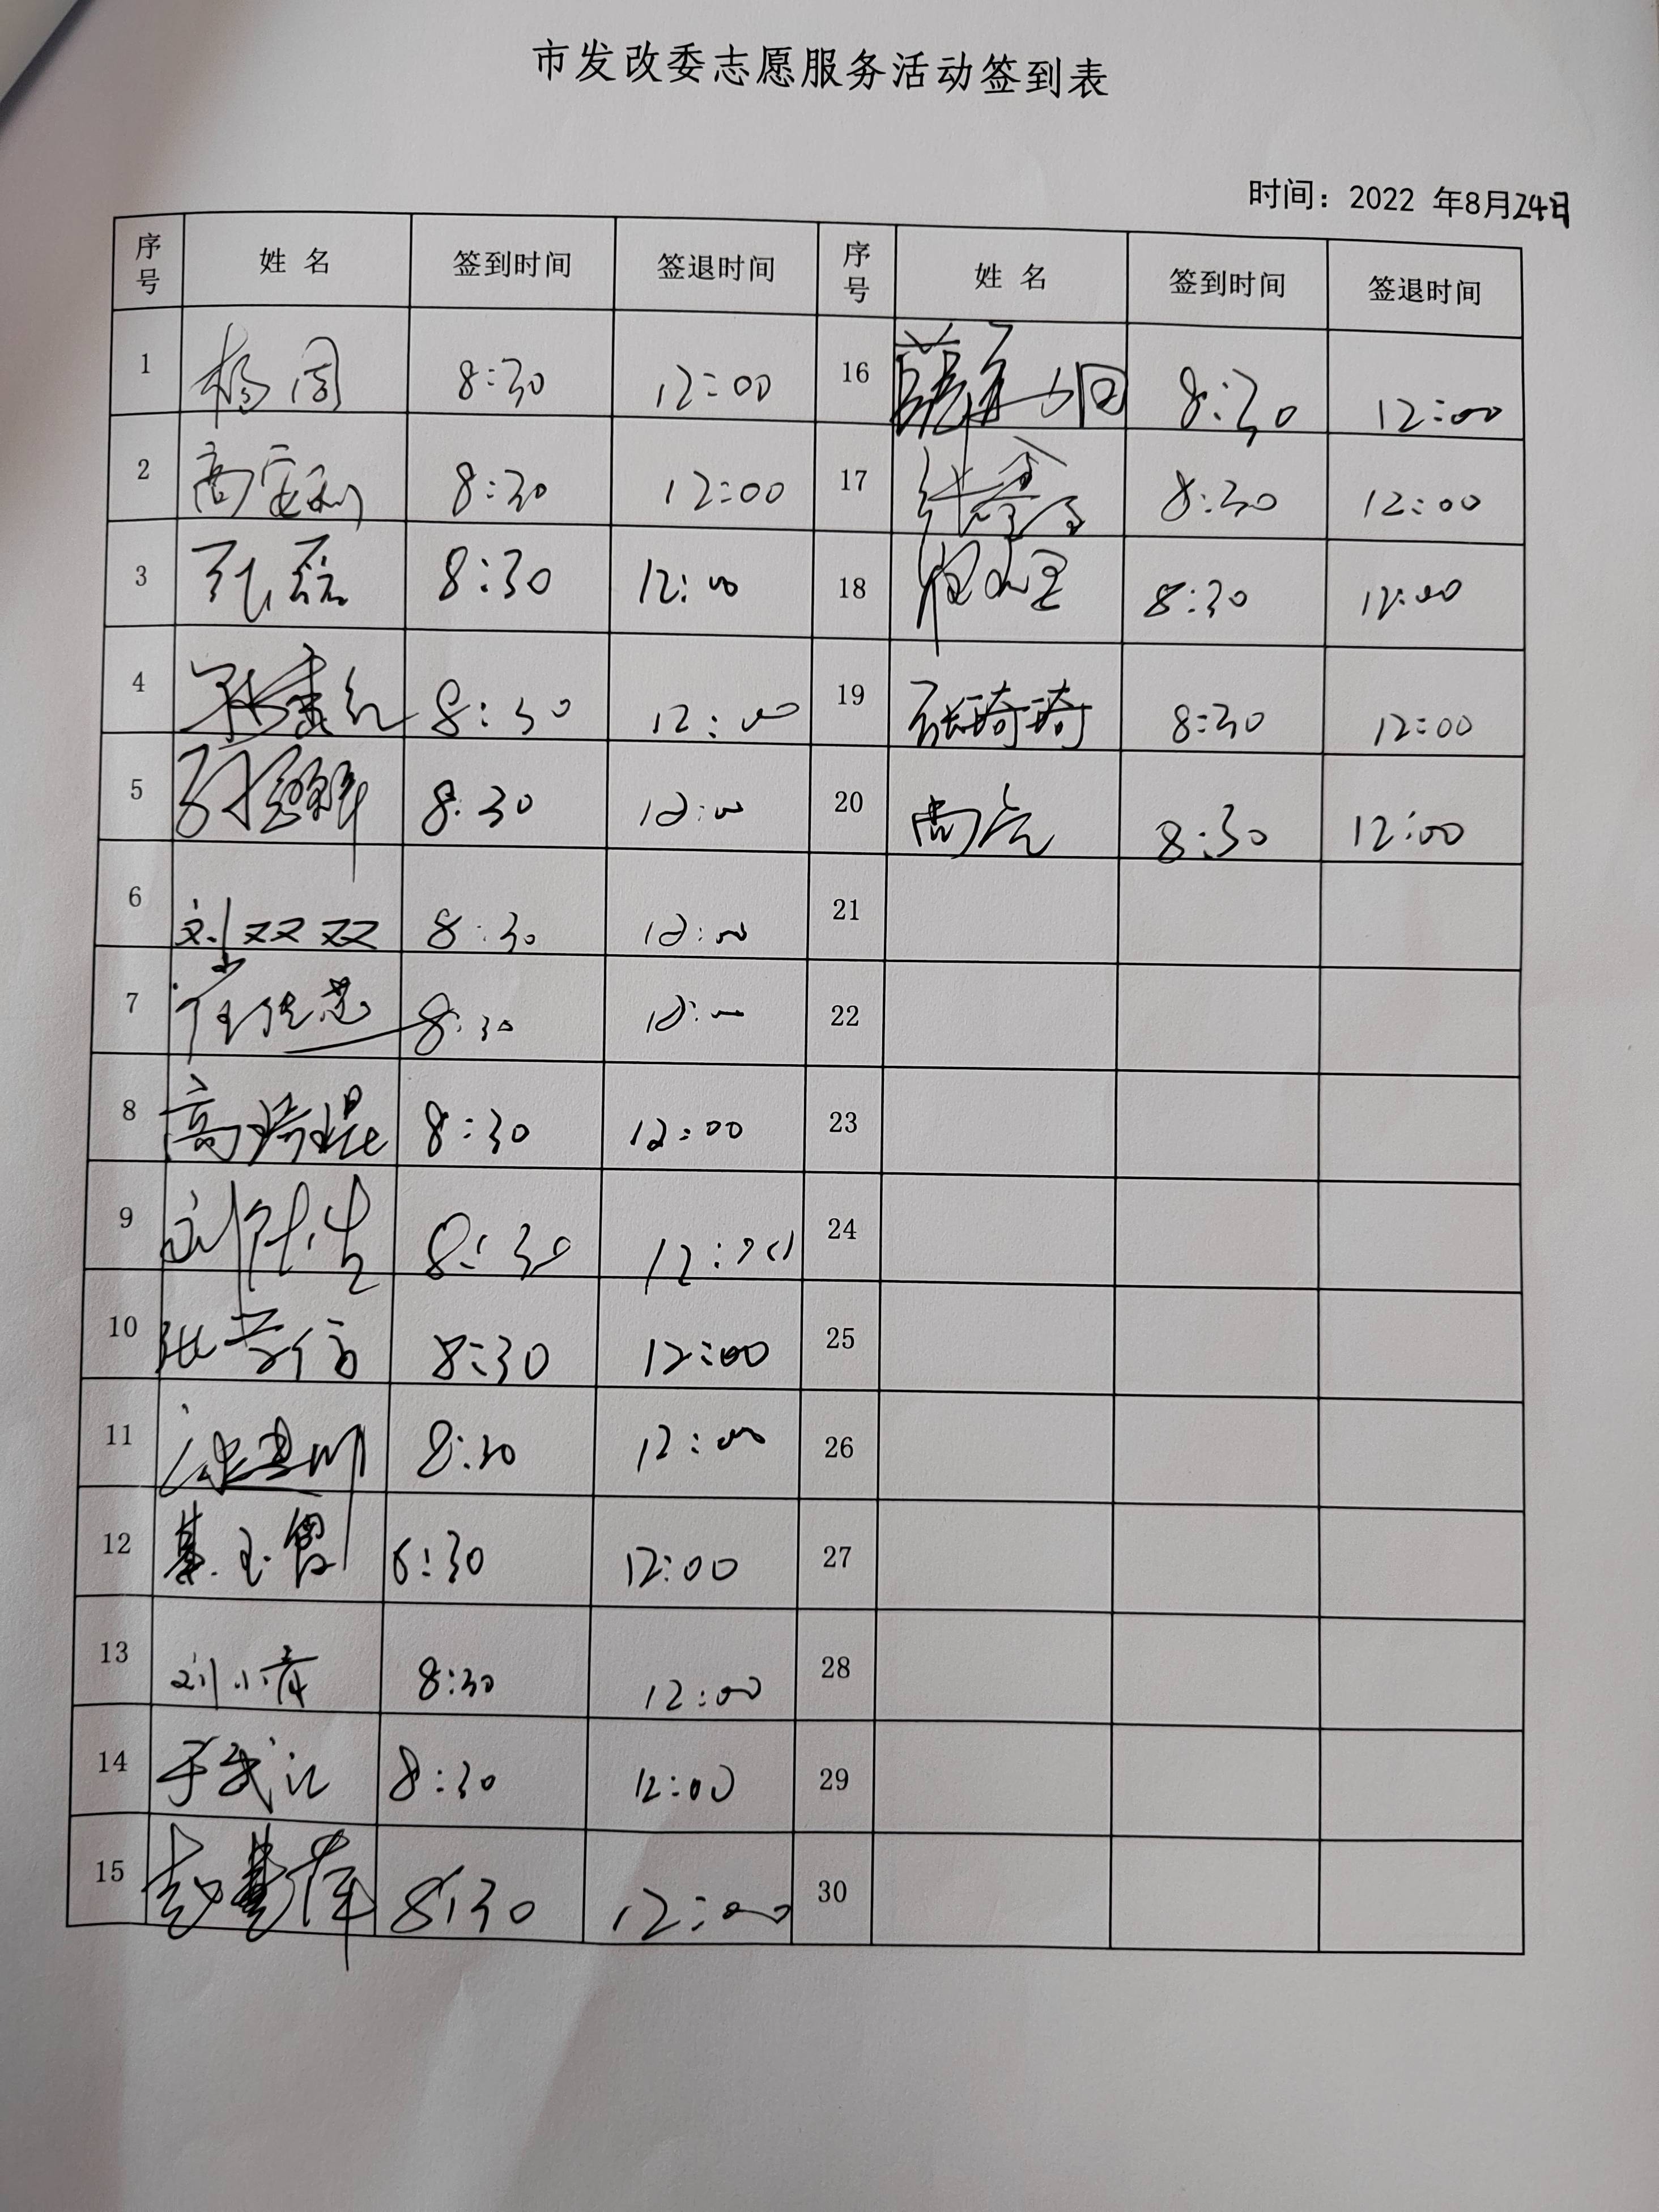 市发改委志愿服务活动签到表
时间：2022 年8月24日
序号 姓 名 签到时间 签退时间 序号 姓 名 签到时间 签退时间
1 杨周 8:30 12:00 16 8:30 12:00
2 高宝利 8:30 12:00 17 8:30 12:00
3 孔磊 8:30 12:00 18 8:30 12:00
4 8:30 12:00 19 张琦琦 8:30 12:00
5 8:30 12:00 20 尚亮 8:30 12:00
6 刘双双 8:30 12:00 21
7 8:30 12:00 22
8 高琦琨 8:30 12:00 23
9 8:30 12:00 24
10 8:30 12:00 25
11 8:30 12:00 26
12 綦玉霞 8:30 12:00 27
13 刘小青 8:30 12:00 28
14 于武江 8:30 12:00 29
15 8:30 12:00 30